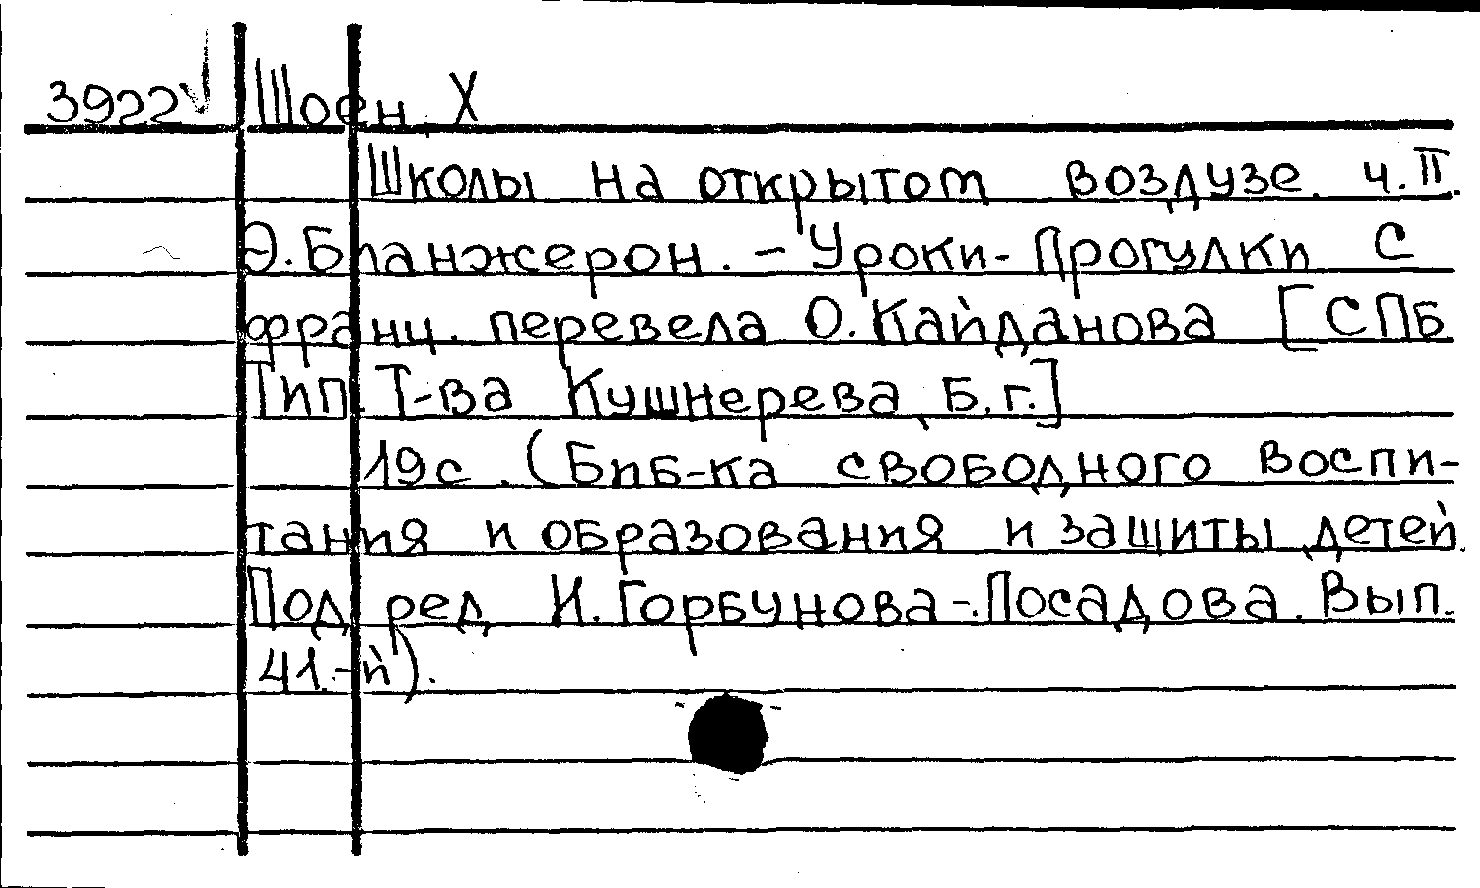 3922 Шоен, Х
Школы на открытом воздузе. ч. II.
Э. Бланжерон. - Уроки-Прогулки С
франц. перевела О. Кайданова [СПБ
Тип. Т-ва Кушнерева, Б.г.]
19с. (Биб-ка свободного воспи-
тания и образования и защиты детей.
Под ред. И. Горбунова-Посадова. Вып.
41.-й).